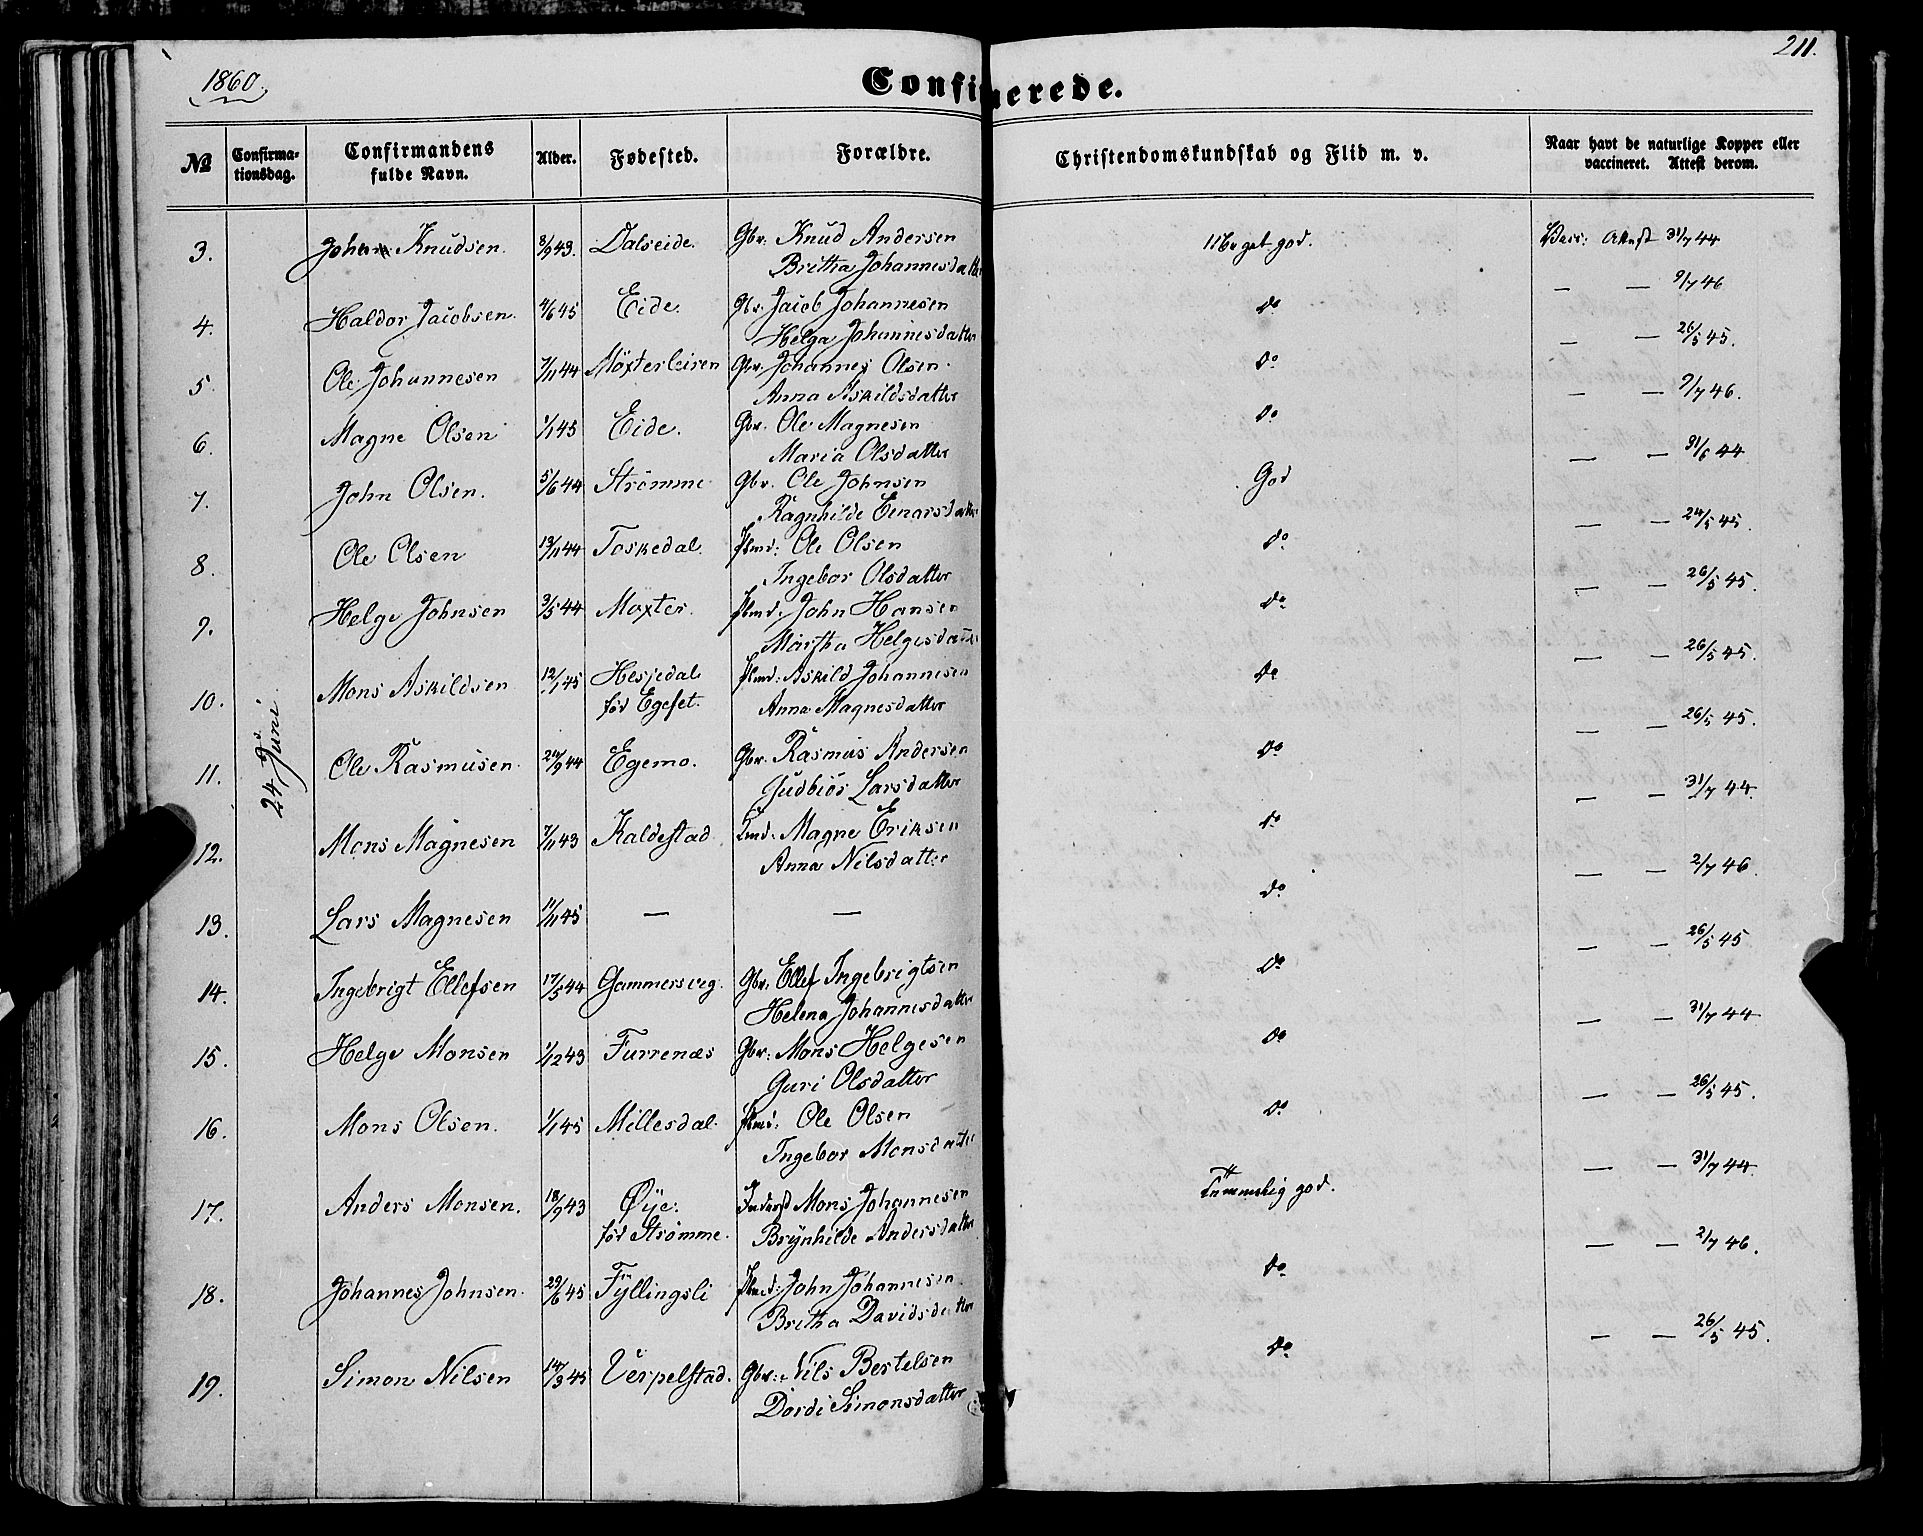 1860.
Confirmerede.
211.
№
Confirma-
tionsdag.
Confirmandens
fulde Navn.
Alder.
Fødested.
Forældre.
Christendomskundskab og Flid m. v.
Naar havt de naturlige Kopper eller
vaccineret. Attest derom.
24 Juni
3. Johan Knudsen. 8/9 43. Dalseide. Gbr: Knud Andersen Meget god. Vacc: Attest 31/7 44
Britha Johannesdatter
4. Haldor Jacobsen. 4/6 45 Eide. Gbr. Jacob Johannesen do — — 9/7 46
Helga Johannesdatter
5. Ole Johannesen 7/11 44 Møxterleiren Gbr. Johannes Olsen. do — — 26/5 45.
Anna Askildsdatter
6. Magne Olsen 1/1 45 Eide. Gbr. Ole Magnesen do — — 9/7 46.
Maria Olsdatter
7. John Olsen. 5/6 44 Strømme Gbr. Ole Johnsen God — — 31/6 44
Ragnhilde Einarsdatter
8. Ole Olsen 13/11 44 Toskedal. Plmd: Ole Olsen do — — 24/5 45.
Ingebor Olsdatter
9. Helge Johnsen 3/5 44 Møxter. Plmd. John Hansen do — — 26/5 45.
Martha Helgesdatter
10. Mons Askildsen 12/1 45 Hesjedal Plmd: Askild Johannesen do — — 26/5 45.
før Egeset. Anna Magnesdatter
11. Ole Rasmusen. 24/9 44 Egemo. Gbr. Rasmus Andersen do — — 26/5 45.
Gudbiør Larsdatter
12. Mons Magnesen 7/11 43 Kaldestad. Magne Eriksen do — — 31/7 44.
Anna Nilsdatter
13. Lars Magnesen 11/11 45 — — do — — 2/7 46.
14. Ingebrigt Ellefsen 17/5 44 Gammersvig. Gbr: Ellef Ingebrigtsen do — — 26/5 45
Helena Johannesdatter
15. Helge Monsen 1/12 43 Furrenæs Gbr: Mons Helgesen do — — 31/7 44
Guri Olsdatter
16. Mons Olsen. 1/1 45 Millesdal. Plmd: Ole Olsen do — — 26/5 45.
Ingebor Monsdatter
17. Anders Monsen. 18/9 43 Øye. Inderst Mons Johannesen Temmelig god. — — 31/7 44.
før Strømme. Brynhilde Andersdatter
18. Johannes Johnsen. 29/6 45 Fyllingsli Plmd: John Johannesen do — — 2/7 46.
Britha Davidsdatter
19. Simon Nilsen 14/3 45 Verpelstad. Gbr: Nils Bertelsen do — — 26/5 45.
Dordi Simonsdatter